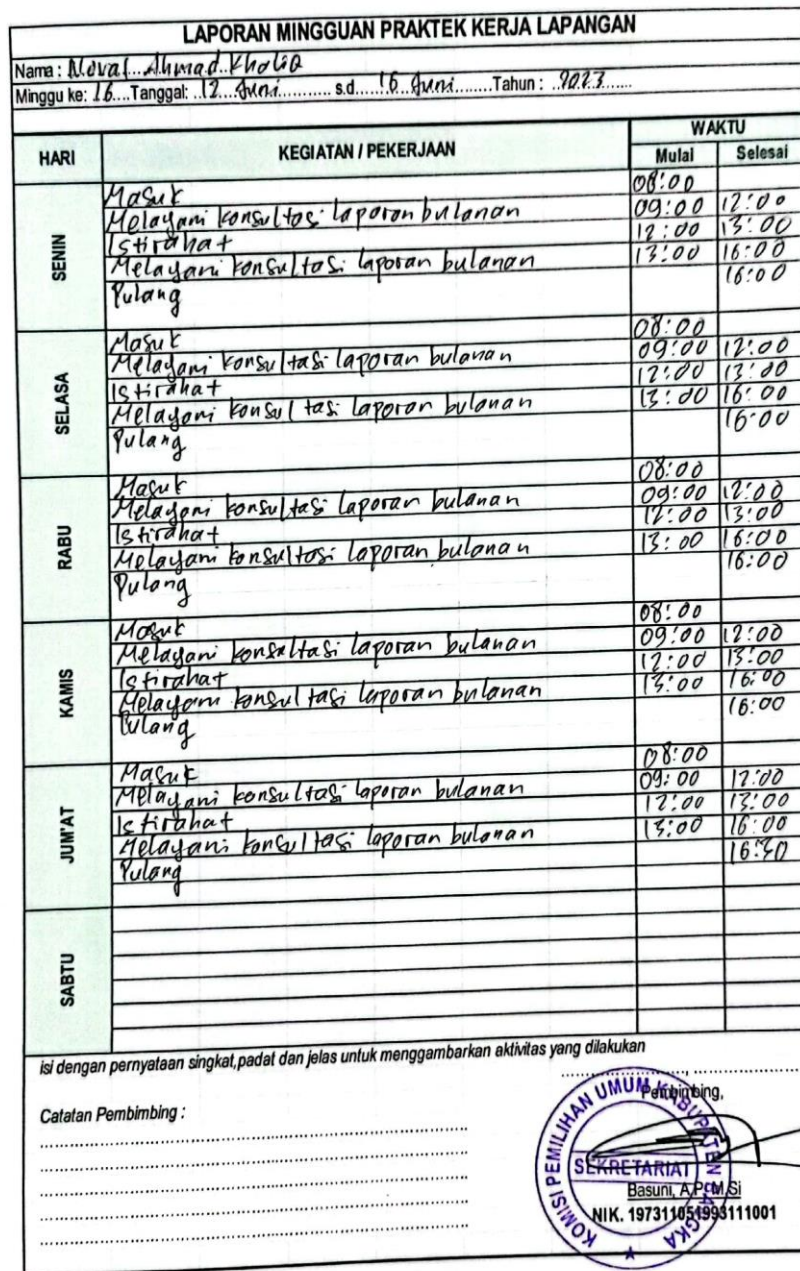 LAPORAN MINGGUAN PRAKTEK KERJA LAPANGAN
Nama : Noval Ahmad Kholiq
Minggu ke: 16 Tanggal: 12 Juni s.d 16 Juni Tahun : 2023
HARI KEGIATAN / PEKERJAAN WAKTU
Mulai Selesai
SENIN
Masuk 08:00
Melayani konsultasi laporan bulanan 09:00 12:00
Istirahat 12:00 13:00
Melayani konsultasi laporan bulanan 13:00 16:00
Pulang 16:00
SELASA
Masuk 08:00
Melayani konsultasi laporan bulanan 09:00 12:00
Istirahat 12:00 13:00
Melayani konsultasi laporan bulanan 13:00 16:00
Pulang 16:00
RABU
Masuk 08:00
Melayani konsultasi laporan bulanan 09:00 12:00
Istirahat 12:00 13:00
Melayani konsultasi laporan bulanan 13:00 16:00
Pulang 16:00
KAMIS
Masuk 08:00
Melayani konsultasi laporan bulanan 09:00 12:00
Istirahat 12:00 13:00
Melayani konsultasi laporan bulanan 13:00 16:00
Pulang 16:00
JUM'AT
Masuk 08:00
Melayani konsultasi laporan bulanan 09:00 12:00
Istirahat 12:00 13:00
Melayani konsultasi laporan bulanan 13:00 16:00
Pulang 16:30
SABTU
isi dengan pernyataan singkat,padat dan jelas untuk menggambarkan aktivitas yang dilakukan
Catatan Pembimbing :
Pembimbing,
KOMISI PEMILIHAN UMUM KABUPATEN BANGKA
SEKRETARIAT
Basuni, A.P, M.Si
NIK. 197311051993111001